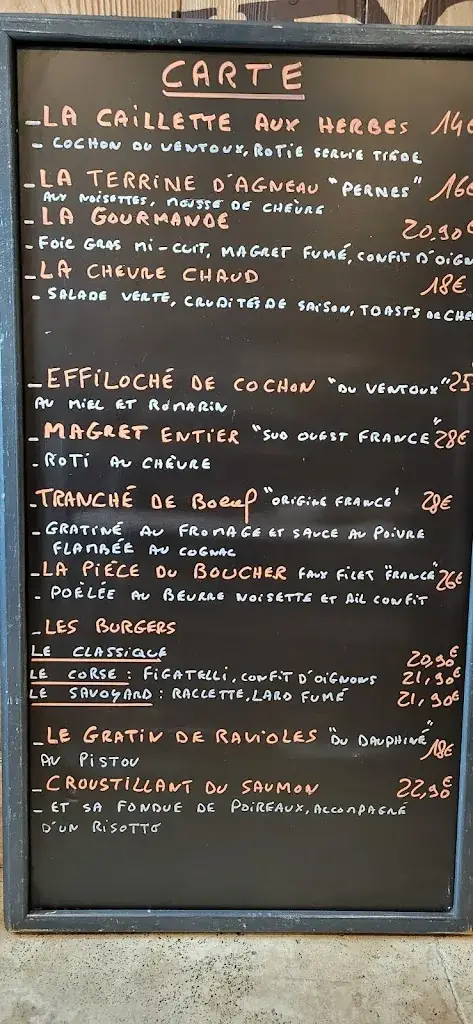 CARTE
- LA CAILLETTE AUX HERBES 14€
- COCHON DU VENTOUX, ROTIE SERVIE TIEDE
- LA TERRINE D'AGNEAU "PERNES" 16€
AUX NOISETTES, MOUSSE DE CHÈVRE
- LA GOURMANDE 20,90€
- FOIE GRAS MI-CUIT, MAGRET FUMÉ, CONFIT D'OIGN
- LA CHEVRE CHAUD 18€
- SALADE VERTE, CRUDITÉS DE SAISON, TOASTS DE CHE
- EFFILOCHÉ DE COCHON "DU VENTOUX" 25
AU MIEL ET ROMARIN
- MAGRET ENTIER "SUD OUEST FRANCE" 28€
- ROTI AU CHÈVRE
- TRANCHÉ DE BOEUF "ORIGINE FRANCE" 29€
- GRATINÉ AU FROMAGE ET SAUCE AU POIVRE
FLAMBÉE AU COGNAC
- LA PIÉCE DU BOUCHER FAUX FILET "FRANCE" 26€
- POÈLÉE AU BEURRE NOISETTE ET AIL CONFIT
- LES BURGERS
LE CLASSIQUE 20,90€
LE CORSE : FIGATELLI, CONFIT D'OIGNONS 21,90€
LE SAVOYARD : RACLETTE, LARD FUMÉ 21,90€
- LE GRATIN DE RAVIOLES "DU DAUPHINÉ" 18€
AU PISTOU
- CROUSTILLANT DU SAUMON 22,90€
- ET SA FONDUE DE POIREAUX, ACCOMPAGNÉ
D'UN RISOTTO